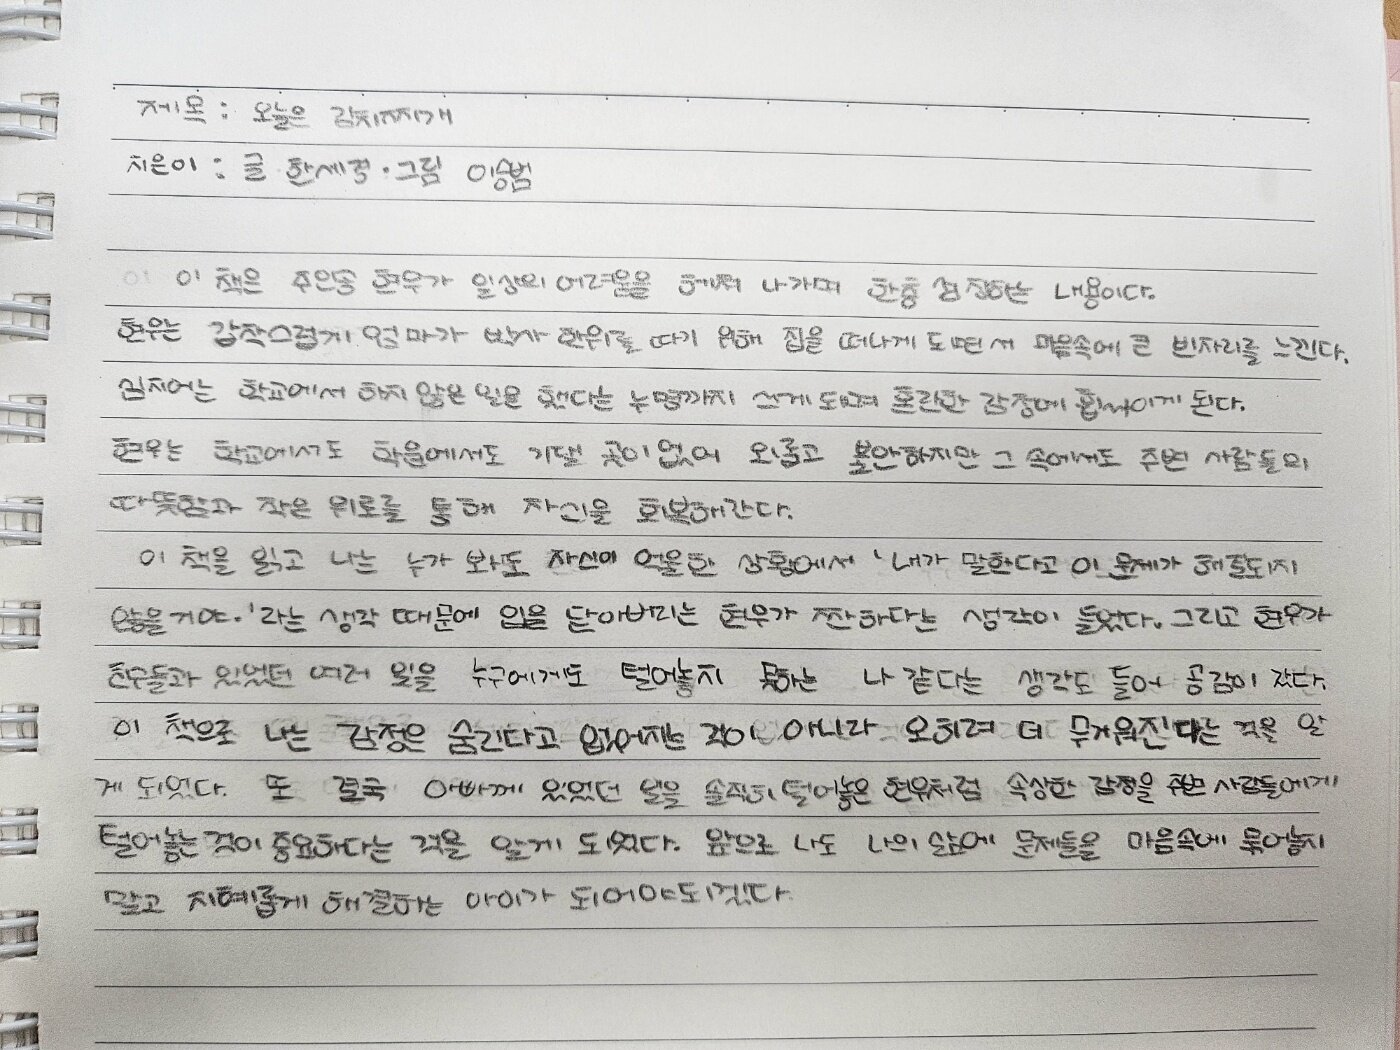 제목 : 오늘은 김치찌개
지은이 : 글 한세경·그림 이승범
이 책은 주인공 현우가 일상의 어려움을 헤쳐 나가며 한층 성장하는 내용이다.
현우는 갑작스럽게 엄마가 박사 학위를 따기 위해 집을 떠나게 되면서 마음속에 큰 빈자리를 느낀다.
심지어는 학교에서 하지 않은 일을 했다는 누명까지 쓰게 되며 혼란한 감정에 휩싸이게 된다.
현우는 학교에서도 학원에서도 기댈 곳이 없어 외롭고 불안하지만 그 속에서도 주변 사람들의
따뜻함과 작은 위로를 통해 자신을 회복해간다.
이 책을 읽고 나는 누가 봐도 자신이 억울한 상황에서 '내가 말한다고 이 문제가 해결되지
않을거야.'라는 생각 때문에 입을 닫아버리는 현우가 짠하다는 생각이 들었다. 그리고 현우가
친구들과 있었던 여러 일을 누구에게도 털어놓지 못하는 나 같다는 생각도 들어 공감이 갔다.
이 책으로 나는 감정은 숨긴다고 없어지는 것이 아니라 오히려 더 무거워진다는 것을 알
게 되었다. 또 결국 아빠께 있었던 일을 솔직히 털어놓은 현우처럼 속상한 감정을 주변 사람들에게
털어놓는 것이 중요하다는 것을 알게 되었다. 앞으로 나도 나의 삶에 문제들을 마음속에 묶어놓지
말고 지혜롭게 해결하는 아이가 되어야되겠다.